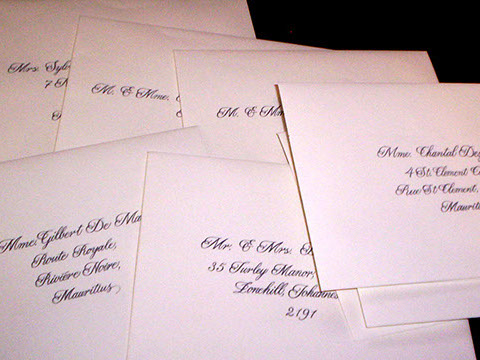 Mrs.
7
M. & Mme.
M. & Mme.
Mme. Chantal
4 St. Clement
Rue St Clement,
Mme. Gilbert De
Route Royale,
Rivière Noire,
Mauritius
Mr. & Mrs.
35 Turley Manor,
Lonehill,
2191